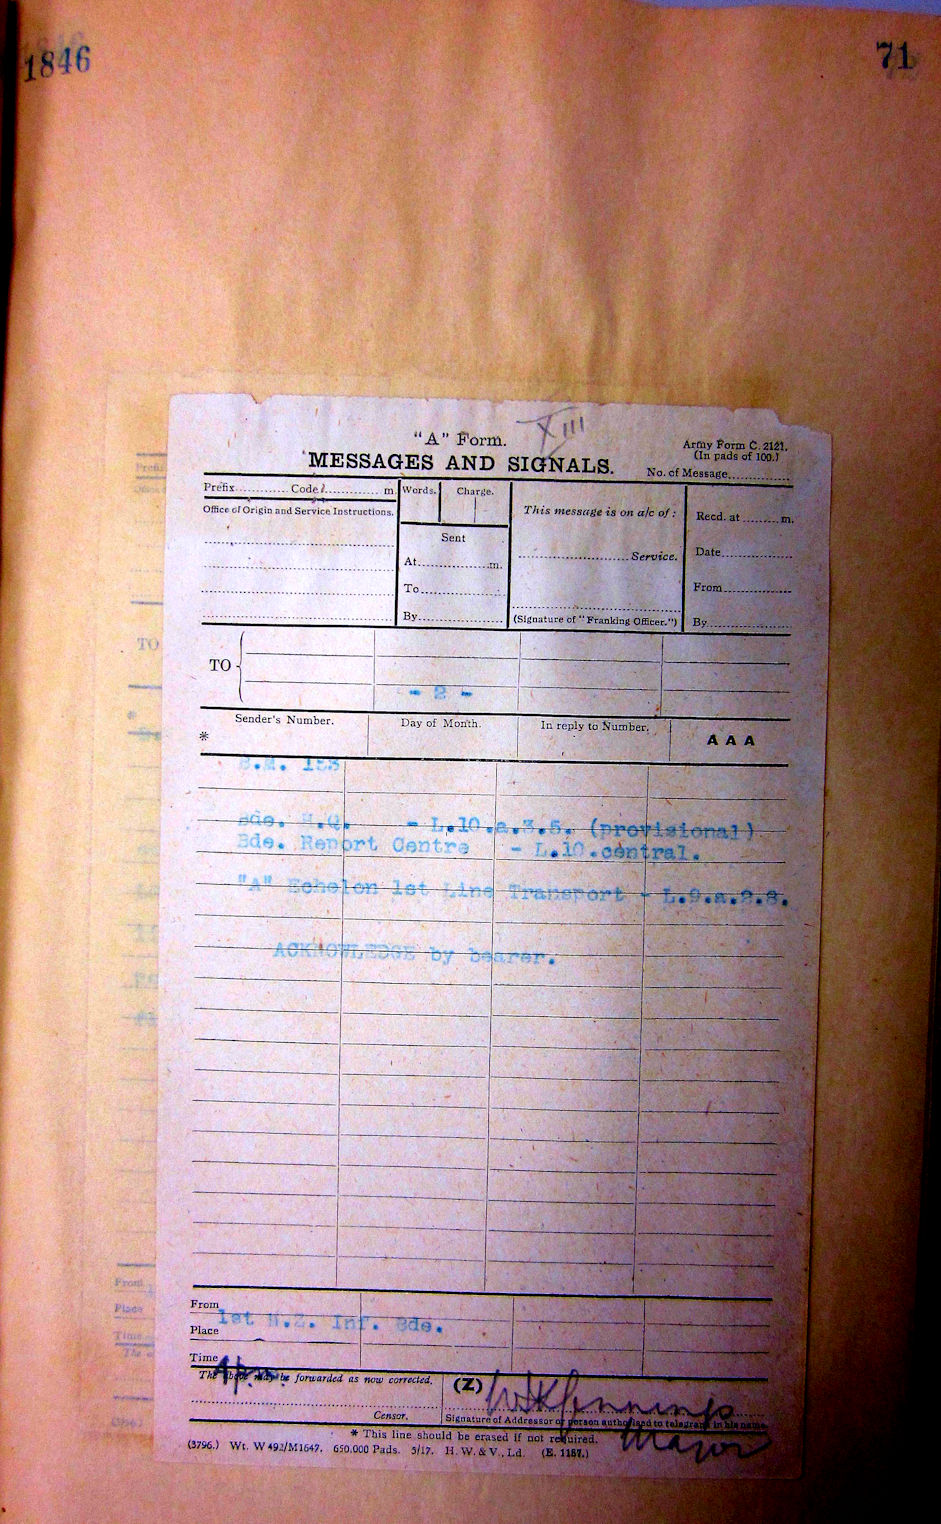 1846
71
XIII
"A" Form.
Army Form C. 2121.
(In pads of 100.)
MESSAGES AND SIGNALS.
No. of Message............
Prefix............ Code............ m.
Words.
Charge.
Office of Origin and Service Instructions.
This message is on a/c of:
Recd. at ......... m.
Sent
At............m.
............Service.
Date............
To............
From............
By............
(Signature of "Franking Officer.")
By............
TO
- 2 -
Sender's Number.
Day of Month.
In reply to Number.
A A A
*
B.M. 153
Bde. H.Q. - L.10.a.3.5. (provisional)
Bde. Report Centre - L.10.central.
"A" Echelon 1st Line Transport - L.9.a.2.8.
ACKNOWLEDGE by bearer.
From
1st N.Z. Inf. Bde.
Place
Time
The above may be forwarded as now corrected.
(Z)
Censor.
Signature of Addressor or person authorised to telegraph in his name
* This line should be erased if not required.
Major
(3796.) Wt. W492/M1647. 650,000 Pads. 5/17. H. W. & V., Ld. (E. 1187.)